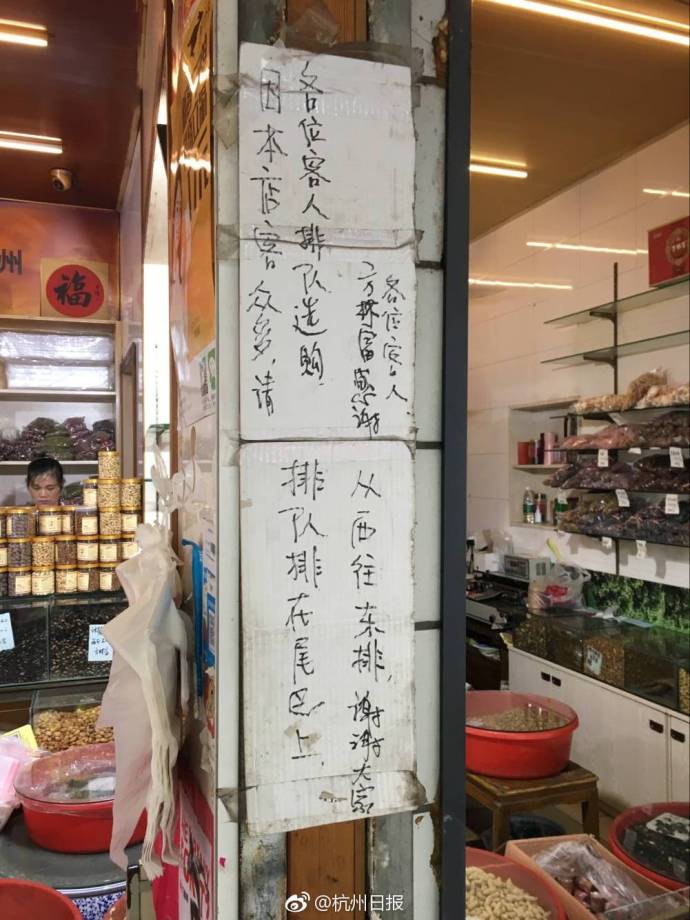 因本店客众多,请
各位客人排队选购
感谢
各位客人
排队排在尾巴上,
从西往东排,谢谢大家
州
福
@杭州日报